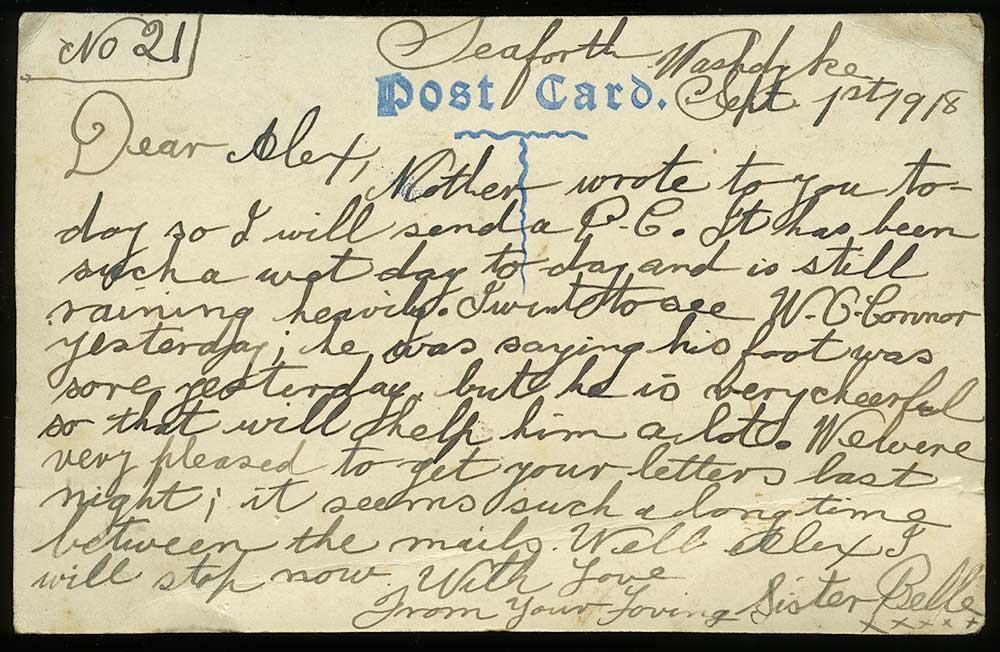 No 21
Seaforth
Washdyke
Post Card.
Sept 1st 1918
Dear Alex,
Mother wrote to you to-
day so I will send a P.C. It has been
such a wet day to day and is still
raining heavily. I went to see W. O. Connor
yesterday; he was saying his foot was
sore yesterday, but he is very cheerful
so that will help him a lot. We were
very pleased to get your letters last
night; it seems such a long time
between the mails. Well Alex I
will stop now With Love
From Your Loving Sister Belle
x x x x x